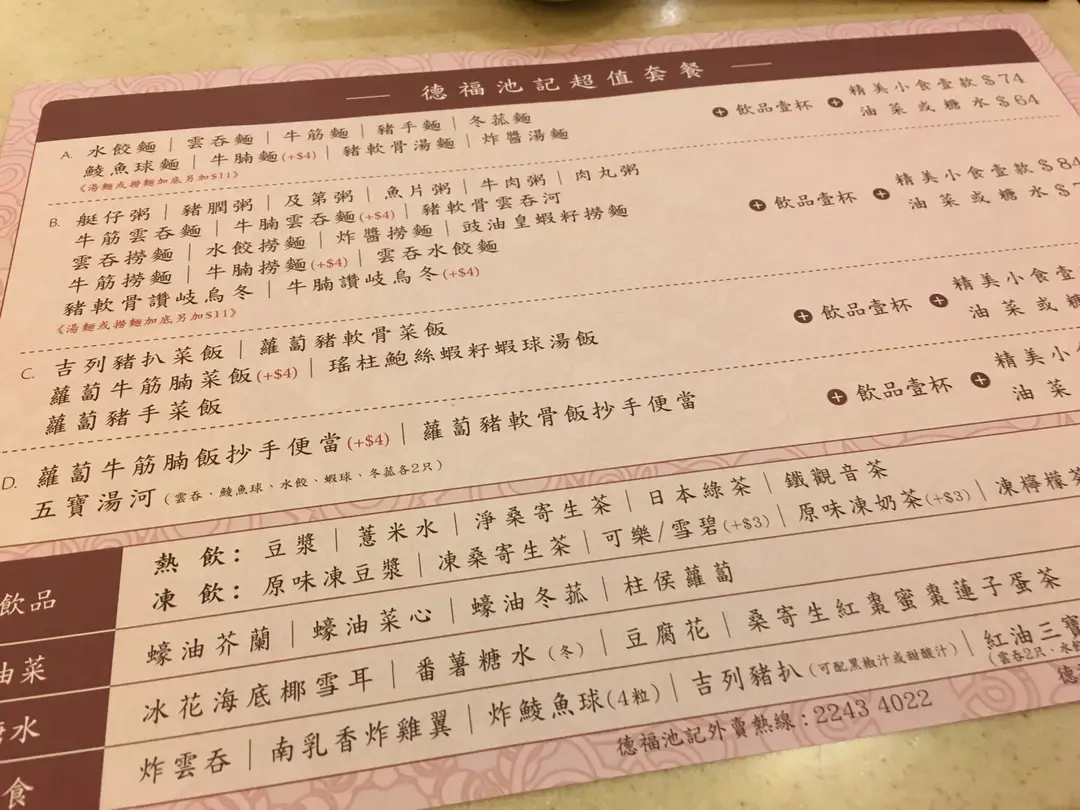 德福池記超值套餐
A. 水餃麵 | 雲吞麵 | 牛筋麵 | 豬手麵 | 冬菰麵
鯪魚球麵 | 牛腩麵(+$4) | 豬軟骨湯麵 | 炸醬湯麵
《湯麵或撈麵加底另加$11》
+ 飲品壹杯 + 精美小食壹款$74
油菜或糖水$64
B. 艇仔粥 | 豬膶粥 | 及第粥 | 魚片粥 | 牛肉粥 | 肉丸粥
牛筋雲吞麵 | 牛腩雲吞麵(+$4) | 豬軟骨雲吞河
雲吞撈麵 | 水餃撈麵 | 炸醬撈麵 | 豉油皇蝦籽撈麵
牛筋撈麵 | 牛腩撈麵(+$4) | 雲吞水餃麵
豬軟骨讚岐烏冬 | 牛腩讚岐烏冬(+$4)
《湯麵或撈麵加底另加$11》
+ 飲品壹杯 + 精美小食壹款$84
油菜或糖水$7
C. 吉列豬扒菜飯 | 蘿蔔豬軟骨菜飯
蘿蔔牛筋腩菜飯(+$4) | 瑤柱鮑絲蝦籽蝦球湯飯
蘿蔔豬手菜飯
+ 飲品壹杯 + 精美小食壹
油菜或糖
D. 蘿蔔牛筋腩飯抄手便當(+$4) | 蘿蔔豬軟骨飯抄手便當
五寶湯河(雲吞、鯪魚球、水餃、蝦球、冬菰各2只)
+ 飲品壹杯 + 精美小
油菜
飲品
熱飲: 豆漿 | 薏米水 | 淨桑寄生茶 | 日本綠茶 | 鐵觀音茶
凍飲: 原味凍豆漿 | 凍桑寄生茶 | 可樂/雪碧(+$3) | 原味凍奶茶(+$3) | 凍檸檬茶
油菜
蠔油芥蘭 | 蠔油菜心 | 蠔油冬菰 | 柱侯蘿蔔
糖水
冰花海底椰雪耳 | 番薯糖水(冬) | 豆腐花 | 桑寄生紅棗蜜棗蓮子蛋茶
食
炸雲吞 | 南乳香炸雞翼 | 炸鯪魚球(4粒) | 吉列豬扒(可配黑椒汁或甜酸汁) | 紅油三寶
(雲吞2只、水餃
德福池記外賣熱線:2243 4022
德